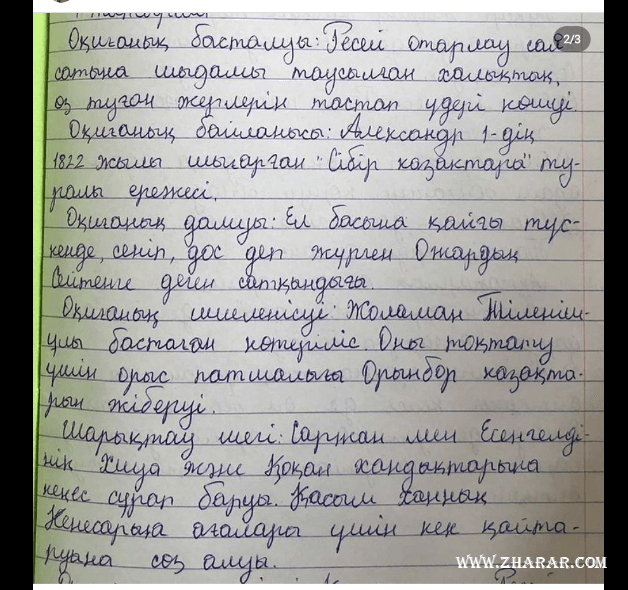 2/3
Оқиғаның басталуы: Ресей отарлау сая
сатына шыдамы таусылған халықтың,
өз туған жерлерін тастап үдері көшуі.
Оқиғаның байланысы: Александр 1-дің
1822 жылы шығарған "Сібір қазақтары" ту-
ралы ережесі.
Оқиғаның дамуы: Ел басына қайғы түс-
кенде, сеніп, дос деп жүрген Ожардың
Сейтенге деген сатқындығы.
Оқиғаның шиеленісуі: Жоламан Тіленші-
ұлы бастаған көтеріліс. Оны тоқтату
үшін орыс патшалығы Орынбор қазақта-
рын жіберуі.
Шарықтау шегі: Саржан мен Есенгелді-
нің Хиуа және Қоқан хандықтарына
кеңес сұрап баруы. Қасым ханның
Кенесарыға ағалары үшін кек қайта-
руына сөз алуы.
WWW.ZHARAR.COM